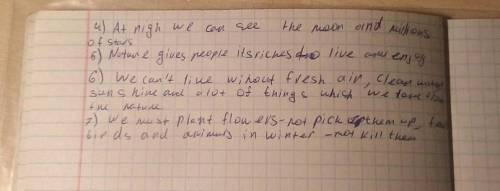 4) At nigh we can see the moon and millions
of stars
5) Nature gives people its riches to live and enjoy
6) We can't live without fresh air, clean water
sunshine and a lot of things which we take from
the nature
7) We must plant flowers-not pick them up,
birds and animals in winter -not kill them